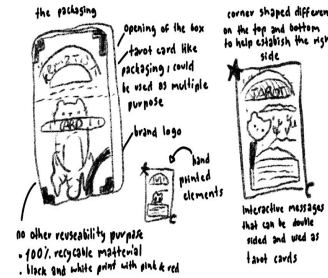 the packaging
opening of the box
tarot card like
packaging i could
be used as multiple
purpose
brand logo
CARD
hand
printed
elements
no other reuseability purpose
• 100% recycable matterial
• black and white print with pink & red
corner shaped differen
on the top and bottom
to help estabish the righ
side
TAROT
Interactive messages
that can be double
sided and used as
tarot cards